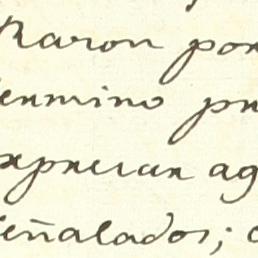 Raron por
ermino pr
xpresar ag
eñalados;